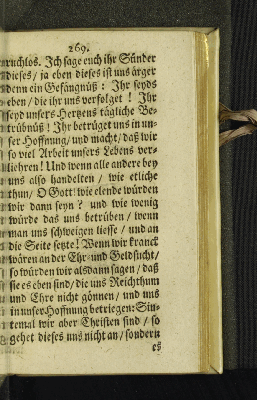 269.
ruchlos. Ich sage euch ihr Sünder
dieses/ ja eben dieses ist uns ärger
denn ein Gefängnüß: Ihr seyds
eben/ die ihr uns verfolget! Ihr
seyd unsers Hertzens tägliche Be-
trübnüß! Ihr betrüget uns in un-
ser Hoffnung/ und macht/ daß wir
so viel Arbeit unsers Lebens ver-
liehren! Und wenn alle andere bey
uns also handelten/ wie etliche
thun/ O Gott! wie elende würden
wir dann seyn? und wie wenig
würde das uns betrüben/ wenn
man uns schweigen liesse/ und an
die Seite setzte! Wenn wir kranck
wären an der Ehr- und Geldsucht/
so würden wir alsdann sagen/ daß
sie es eben sind/ die uns Reichthum
und Ehre nicht gönnen/ und uns
in unser Hoffnung betriegen: Sin-
temal wir aber Christen sind/ so
gehet dieses uns nicht an/ sondern
es